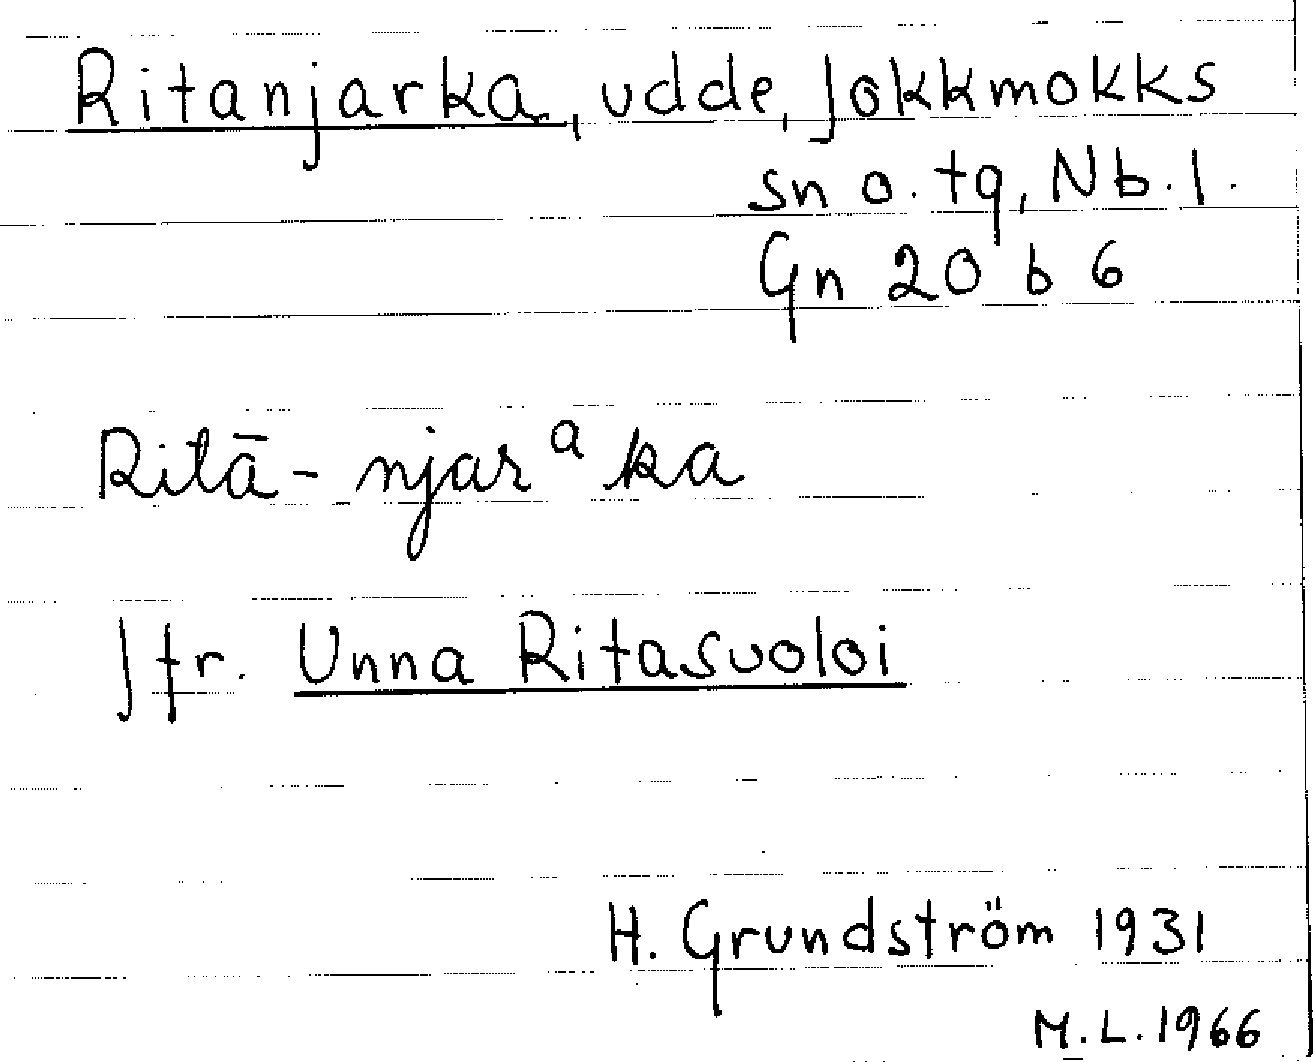 Ritanjarka, udde, Jokkmokks
sn o. tg, Nb. l.
Gn 20 b 6
Ritā-njarᵃka
Jfr. Unna Ritasuoloi
H. Grundström 1931
M.L. 1966